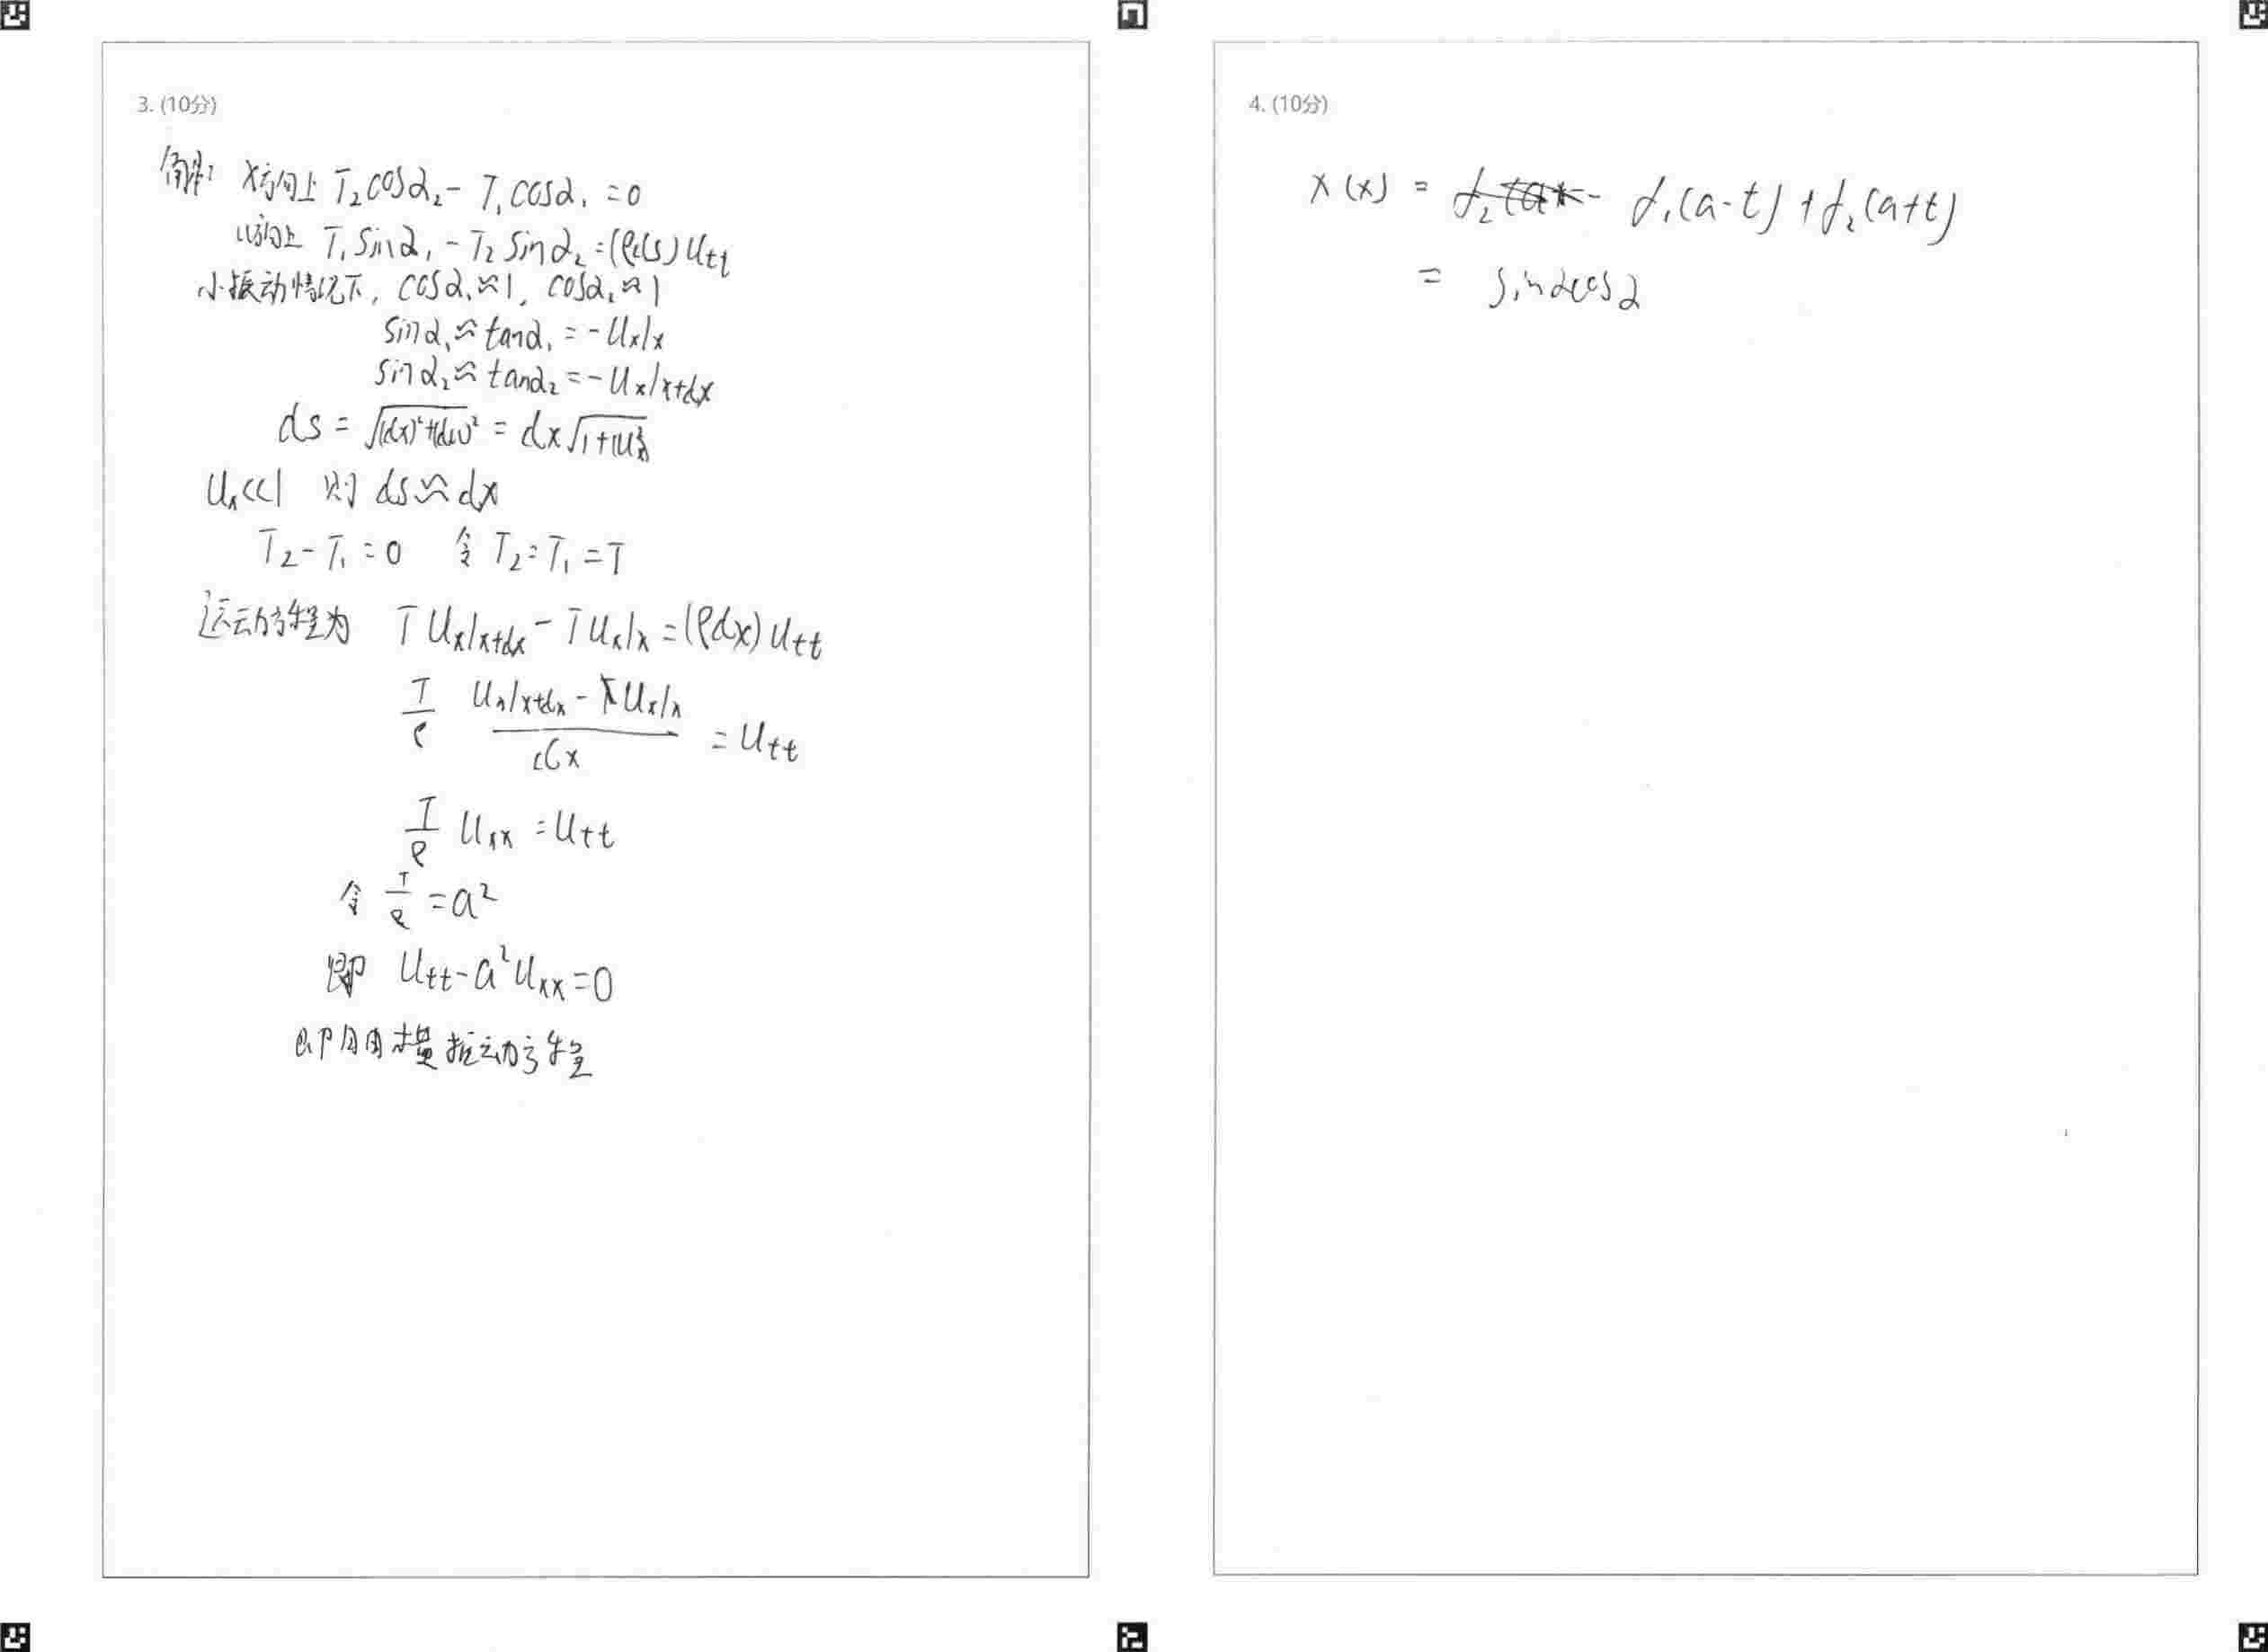 3. (10分)
解: x方向上 T₂cosα₂ - T₁cosα₁ = 0
u方向上 T₁sinα₁ - T₂sinα₂ = (ρds)uₜₜ
小振动情况下, cosα₁≈1, cosα₂≈1
sinα₁≈tanα₁ = -uₓ|ₓ
sinα₂≈tanα₂ = -uₓ|ₓ₊dₓ
ds = √(dx)²+(du)² = dx√1+(uₓ)²
uₓ<<1 则 ds≈dx
T₂-T₁=0 令 T₂=T₁=T
运动方程为 Tuₓ|ₓ₊dₓ - Tuₓ|ₓ = (ρdx)uₜₜ
T/ρ (uₓ|ₓ₊dₓ - uₓ|ₓ)/dx = uₜₜ
T/ρ uₓₓ = uₜₜ
令 T/ρ = a²
即 uₜₜ - a²uₓₓ = 0
即自由横振动方程
4. (10分)
X(x) = f₁(a-t) + f₂(a+t)
= sinαcosα